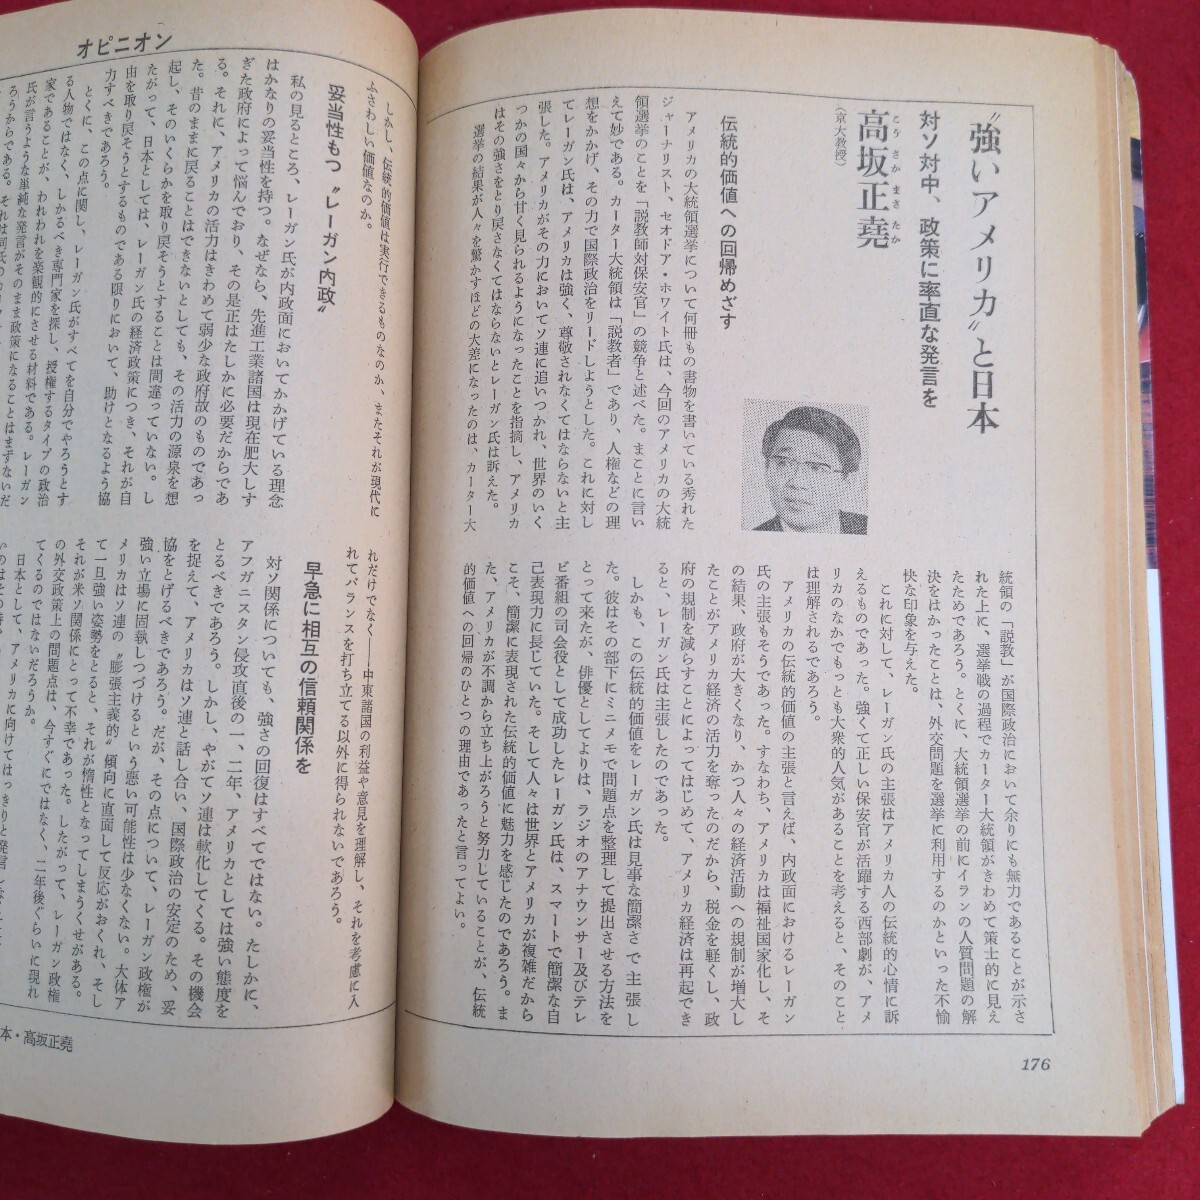 〝強いアメリカ〟と日本
対ソ対中、政策に率直な発言を
こうさかまさたか
高坂正堯
(京大教授)
伝統的価値への回帰めざす
アメリカの大統領選挙について何冊もの書物を書いている秀れた
ジャーナリスト、セオドア・ホワイト氏は、今回のアメリカの大統
領選挙のことを「説教師対保安官」の競争と述べた。まことに言い
えて妙である。カーター大統領は「説教者」であり、人権などの理
想をかかげ、その力で国際政治をリードしようとした。これに対し
てレーガン氏は、アメリカは強く、尊敬されなくてはならないと主
張した。アメリカがその力においてソ連に追いつかれ、世界のいく
つかの国々から甘く見られるようになったことを指摘し、アメリカ
はその強さをとり戻さなくてはならないとレーガン氏は訴えた。
選挙の結果が人々を驚かすほどの大差になったのは、カーター大
統領の「説教」が国際政治において余りにも無力であることが示さ
れた上に、選挙戦の過程でカーター大統領がきわめて策士的に見え
たためであろう。とくに、大統領選挙の前にイランの人質問題の解
決をはかったことは、外交問題を選挙に利用するのかといった不愉
快な印象を与えた。
これに対して、レーガン氏の主張はアメリカ人の伝統的心情に訴
えるものであった。強くて正しい保安官が活躍する西部劇が、アメ
リカのなかでもっとも大衆的人気があることを考えると、そのこと
は理解されるであろう。
アメリカの伝統的価値の主張と言えば、内政面におけるレーガン
氏の主張もそうであった。すなわち、アメリカは福祉国家化し、そ
の結果、政府が大きくなり、かつ人々の経済活動への規制が増大し
たことがアメリカ経済の活力を奪ったのだから、税金を軽くし、政
府の規制を減らすことによってはじめて、アメリカ経済は再起でき
ると、レーガン氏は主張したのであった。
しかも、この伝統的価値をレーガン氏は見事な簡潔さで主張し
た。彼はその部下にミニメモで問題点を整理して提出させる方法を
とって来たが、俳優としてよりは、ラジオのアナウンサー及びテレ
ビ番組の司会役として成功したレーガン氏は、スマートで簡潔な自
己表現力に長じていた。そして人々は世界とアメリカが複雑だから
こそ、簡潔に表現された伝統的価値に魅力を感じたのであろう。ま
た、アメリカが不調から立ち上がろうと努力していることが、伝統
的価値への回帰のひとつの理由であったと言ってよい。
176
オピニオン
しかし、伝統的価値は実行できるものなのか、またそれが現代に
ふさわしい価値なのか。
妥当性もつ〝レーガン内政〟
私の見るところ、レーガン氏が内政面においてかかげている理念
はかなりの妥当性を持つ。なぜなら、先進工業諸国は現在肥大しす
ぎた政府によって悩んでおり、その是正はたしかに必要だからであ
る。それに、アメリカの活力はきわめて弱少な政府故のものであっ
た。昔のままに戻ることはできないとしても、その活力の源泉を想
起し、そのいくらかを取り戻そうとすることは間違っていない。し
たがって、日本としては、レーガン氏の経済政策につき、それが自
由を取り戻そうとするものである限りにおいて、助けとなるよう協
力すべきであろう。
とくに、この点に関し、レーガン氏がすべてを自分でやろうとす
る人物ではなく、しかるべき専門家を探し、授権するタイプの政治
家であることが、われわれを楽観的にさせる材料である。レーガン
氏が言うような単純な発言がそのまま政策になることはまずないだ
ろうからである。それは同氏の
れだけでなく――中東諸国の利益や意見を理解し、それを考慮に入
れてバランスを打ち立てる以外に得られないであろう。
早急に相互の信頼関係を
対ソ関係についても、強さの回復はすべてではない。たしかに、
アフガニスタン侵攻直後の一、二年、アメリカとしては強い態度を
とるべきであろう。しかし、やがてソ連は軟化してくる。その機会
を捉えて、アメリカはソ連と話し合い、国際政治の安定のため、妥
協をとげるべきであろう。だが、その点について、レーガン政権が
強い立場に固執しつづけるという悪い可能性は少なくない。大体ア
メリカはソ連の〝膨張主義的〟傾向に直面して反応がおくれ、そし
て一旦強い姿勢をとると、それが惰性となってしまうくせがある。
それが米ソ関係にとって不幸であった。したがって、レーガン政権
の外交政策上の問題点は、今すぐにではなく、二年後ぐらいに現れ
てくるのではないだろうか。
日本として、アメリカに向けてはっきりと発言
本・高坂正堯